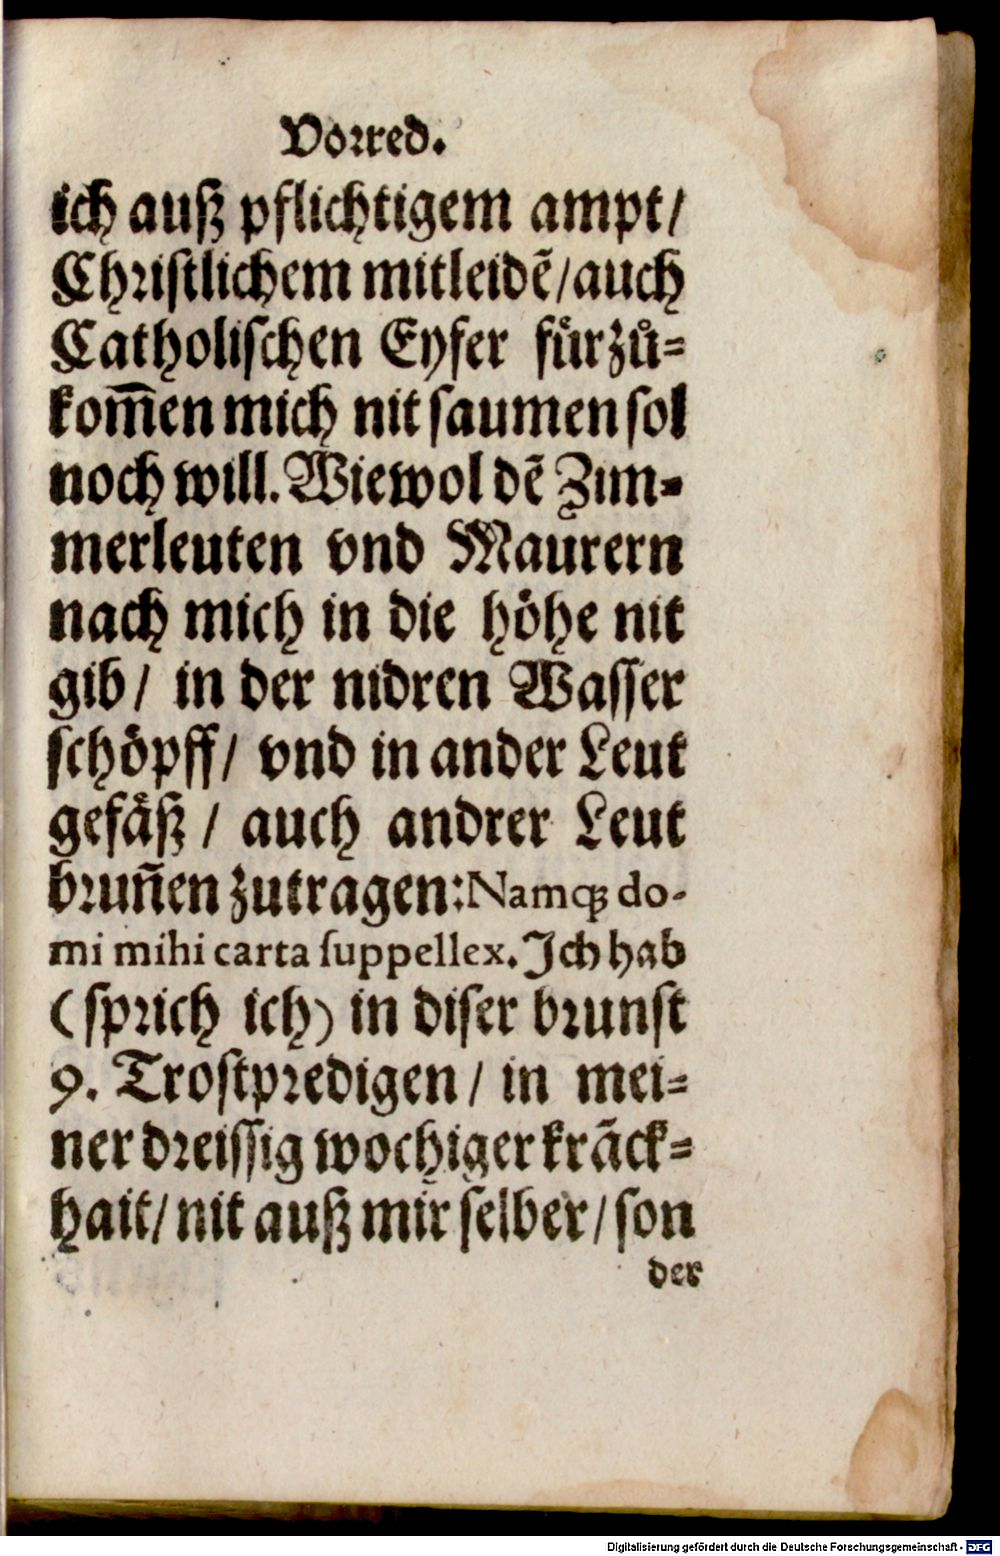 Vorred.
ich auß pflichtigem ampt/
Christlichem mitleidẽ/auch
Catholischen Eyfer fürzů=
kom̃en mich nit saumen sol
noch will. Wiewol dẽ Zim=
merleuten vnd Maurern
nach mich in die höhe nit
gib/ in der nidren Wasser
schöpff/ vnd in ander Leut
gefäß / auch andrer Leut
brun̄en zutragen: Namq́; do-
mi mihi carta suppellex. Ich hab
(sprich ich) in diser brunst
9. Trostpredigen / in mei=
ner dreissig wochiger krãck=
hait/ nit auß mir selber/ son
der
Digitalisierung gefördert durch die Deutsche Forschungsgemeinschaft - DFG